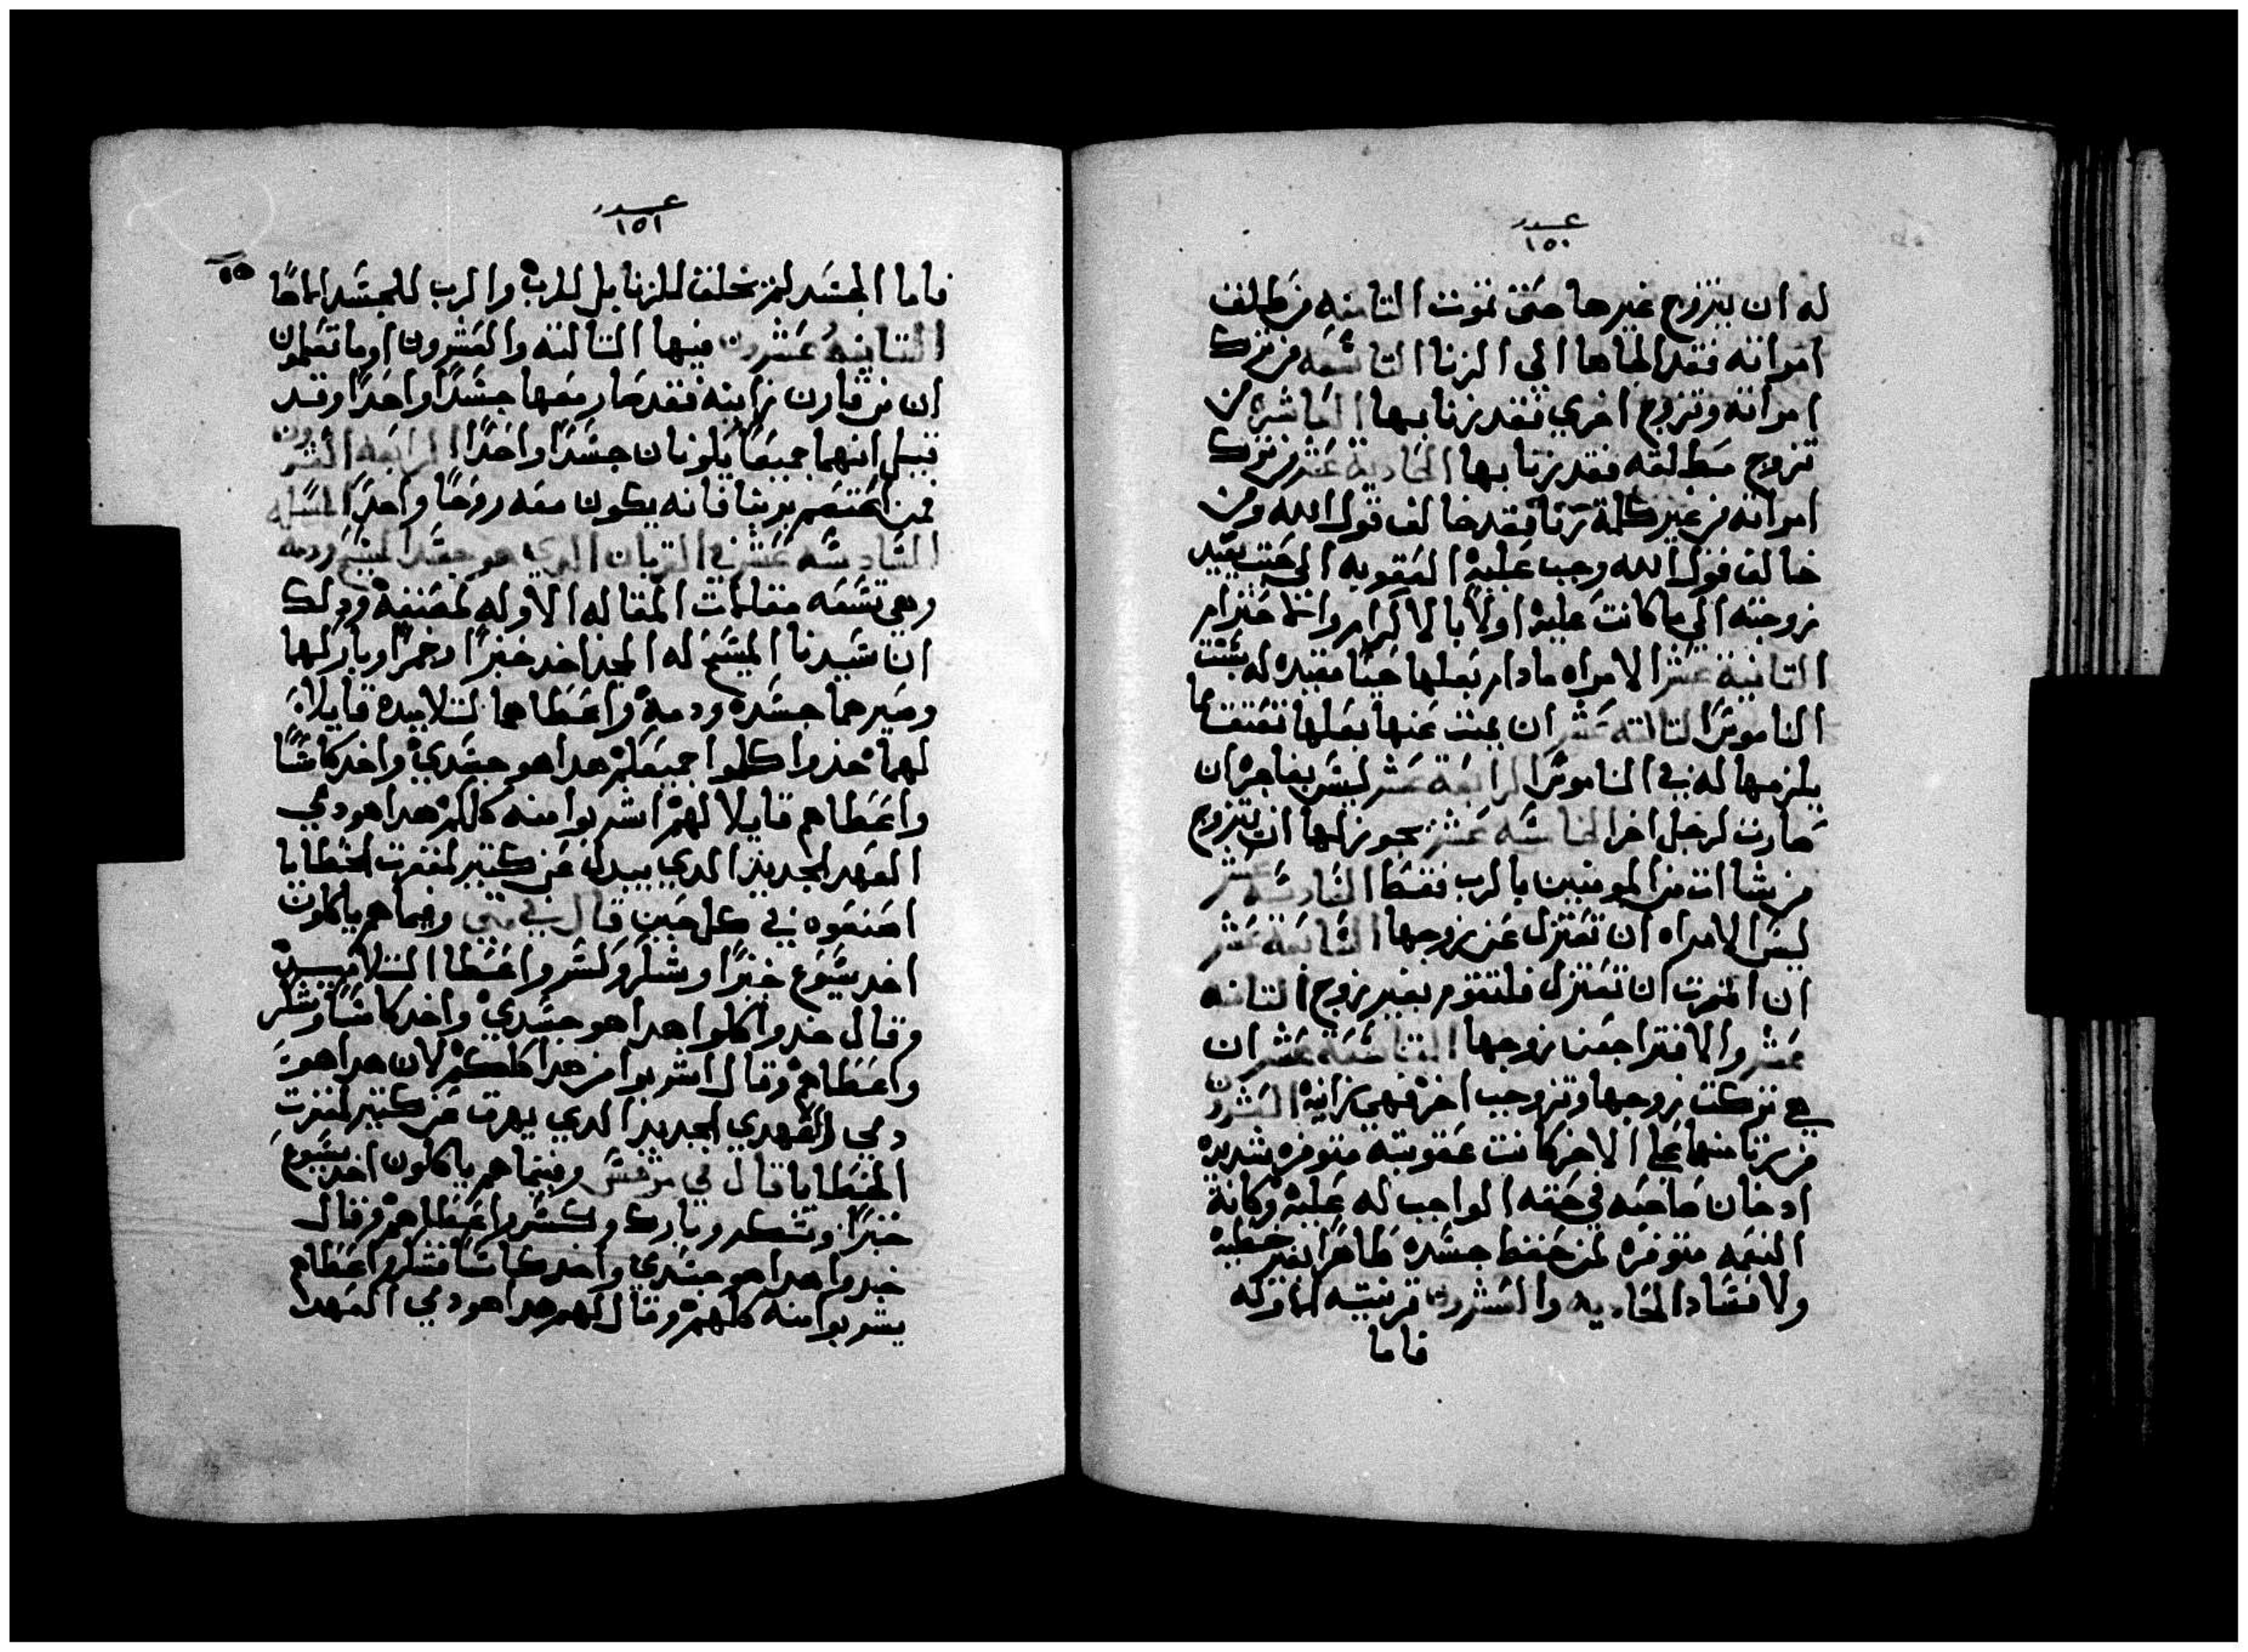 عدد
١٥٠
له ان يتزوج غيرها حتى تموت التامنه من طلق
امراته فقد الجاها الى الزنا التاسعه من ترك
امراته وتزوج اخري فقد زنا بها العاشره من
تزوج مطلقه فقد زنا بها الحادية عشر من ترك
امراته من غير كلمة زنا فقد خالف قول الله ومن
خالف قول الله وجب علية العقوبه الي حيت يعيد
زوجته الي ما كانت علية اولاً بالاكرام والاحترام
التانية عشر الامراه مادام بعلها حيًا مقيده له بسنت
الناموس التالته عشر ان يمت عنها بعلها تعتقت مما
يلزمها له في الناموس الرابعة عشر ليس بفاجره ان
صارت لرجل اخر الخامسه عشر يجوز لها ان تتزوج
من شاات من المومنين بالرب فقط السادسه عشر
ليس الامراه ان تعتزل عن زوجها السابعة عشر
ان اثرت ان تعتزل فلتقوم بغير زوج التامنه
عشر والا فتراجعن زوجها التاسعة عشر ان
هي تركت زوجها وتزوجب اخر فهي زانية العشرون
من زنا منهما على الاخر كانت عقوبته متوفره شديده
اد خان صاحبه في حقه الواجب له علية وكانة
النعمه متوفره لمن حفظ جسده طاهرًا بغير خطية
ولا فساد الحاديه والعشرون قرنتيه الاوله
فاما
عدد
١٥١
١٥
فاما الجسد لم يخلق للزنا بل للرب والرب للجسد ايضًا
التانيه عشرون منها التالته والعشرون اوما تعلمون
ان من قارن زانيه فقد صار معها جسدًا واحدًا وقد
قيل انهما جميعًا يكونان جسدًا واحدًا الرابعة العشرون
فمن اعتصم بربنا فانه يكون معه روحًا واحدًا المساله
السادسه عشر في القربان الدي هو جسد المسيح ودمه
وهي تسعه مقامات المقاله الاوله لمصنفة ودلك
ان سيدنا المسيح له المجد اخد خبزًا وخمرًا وباركها
وصيرهما جسده ودمة واعطاهما لتلاميده قايلاً
لهما خدوا كلوا جميعكم هدا هو جسدي واخد كاسًا
واعطاهم قايلا لهم اشربوا منه كلكم هدا هو دمي
العهد الجديد الدي يبدل عن كتير لمغفرت الخطايا
اصنعوه في كل حين قال في متي وفيما هم ياكلون
اخد يسوع خبزًا وشكر وكسر واعطا التلاميد
وقال خدوا كلوا هدا هو جسدي واخد كاسًا وشكر
واعطاهم وقال اشربوا من هدا كلكم لان هدا هو
دمي والعهدي الجديد الدي يهرت عن كتير لمغفرت
الخطايا قال في مرقس وفيما هم ياكلون اخد يسوع
خبزًا وشكر وبارك وكسر واعطاهم وقال
خدوا هدا هو جسدي واخد كاسًا فشكر واعطاهم
يشربوا منه كلهم وقال لهم هدا هو دمي العهدا